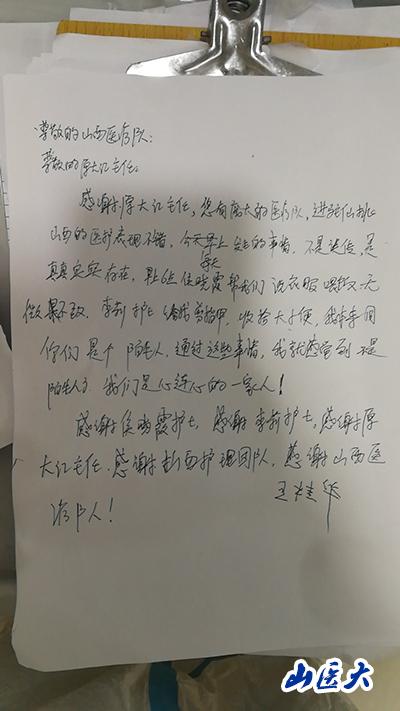 尊敬的山西医疗队:
尊敬的厚大江主任。
感谢厚大江主任,您有庞大的医疗队,进驻仙桃
山西的医护表现不错,今天早上发生的事情,不是误传,是
真真实实存在,护士侯晓霞每天帮我们洗衣服喂饭无
微不致。李莉护士给我剪指甲,收拾大小便,我本来同
你们是个陌生人,通过这些事情,我就感觉到不是
陌生人,我们是心连心的一家人!
感谢侯晓霞护士,感谢李莉护士,感谢厚
大江主任,感谢山西护理团队,感谢山西医
疗队人!
王桂华
山医大